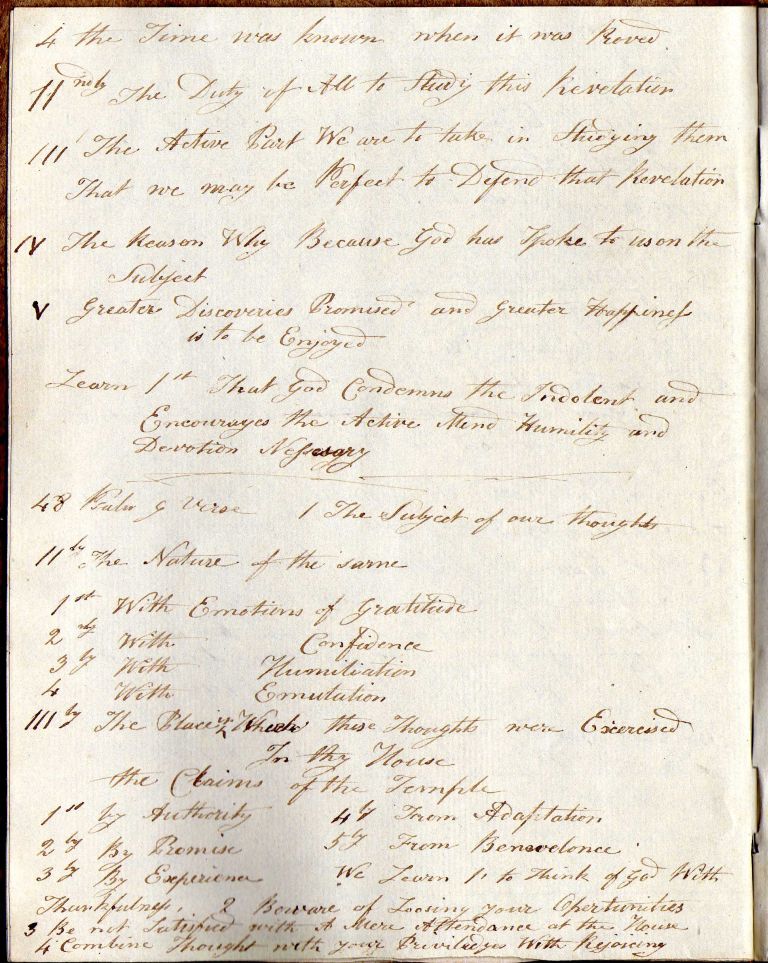 4 the Time was known when it was Roved
11ndly The Duty of All to Study this Revelation
111 The Active Part We are to take in Studying them
That we may be Perfect to Defend that Revelation
IV The Reason Why Because God has Spoke to us on the
Subject
V Greater Discoveries Promised and Greater Happiness
is to be Enjoyed
Learn 1st That God Condemns the Indolent and
Encourages the Active Mind Humility and
Devotion Nessesary
48 Psalm 9 Verse 1 The Subject of our thoughts
11ly The Nature of the same
1st With Emotions of Gratitude
2ndly With Confidence
3ly With Humiliation
4 With Emulation
111ly The Place in Which these Thoughts were Excercised
In thy House
the Claims of the Temple
1st by Authority 4ly From Adaptation
2ly By Promise 5ly From Benevolence
3ly By Experience We Learn 1 to think of God With
Thankfulness, 2 Beware of Loosing your Opertunities
3 Be not Satisfied with A Mere Attendance at the House
4 Combine Thought with your Priviledges With Rejoicing